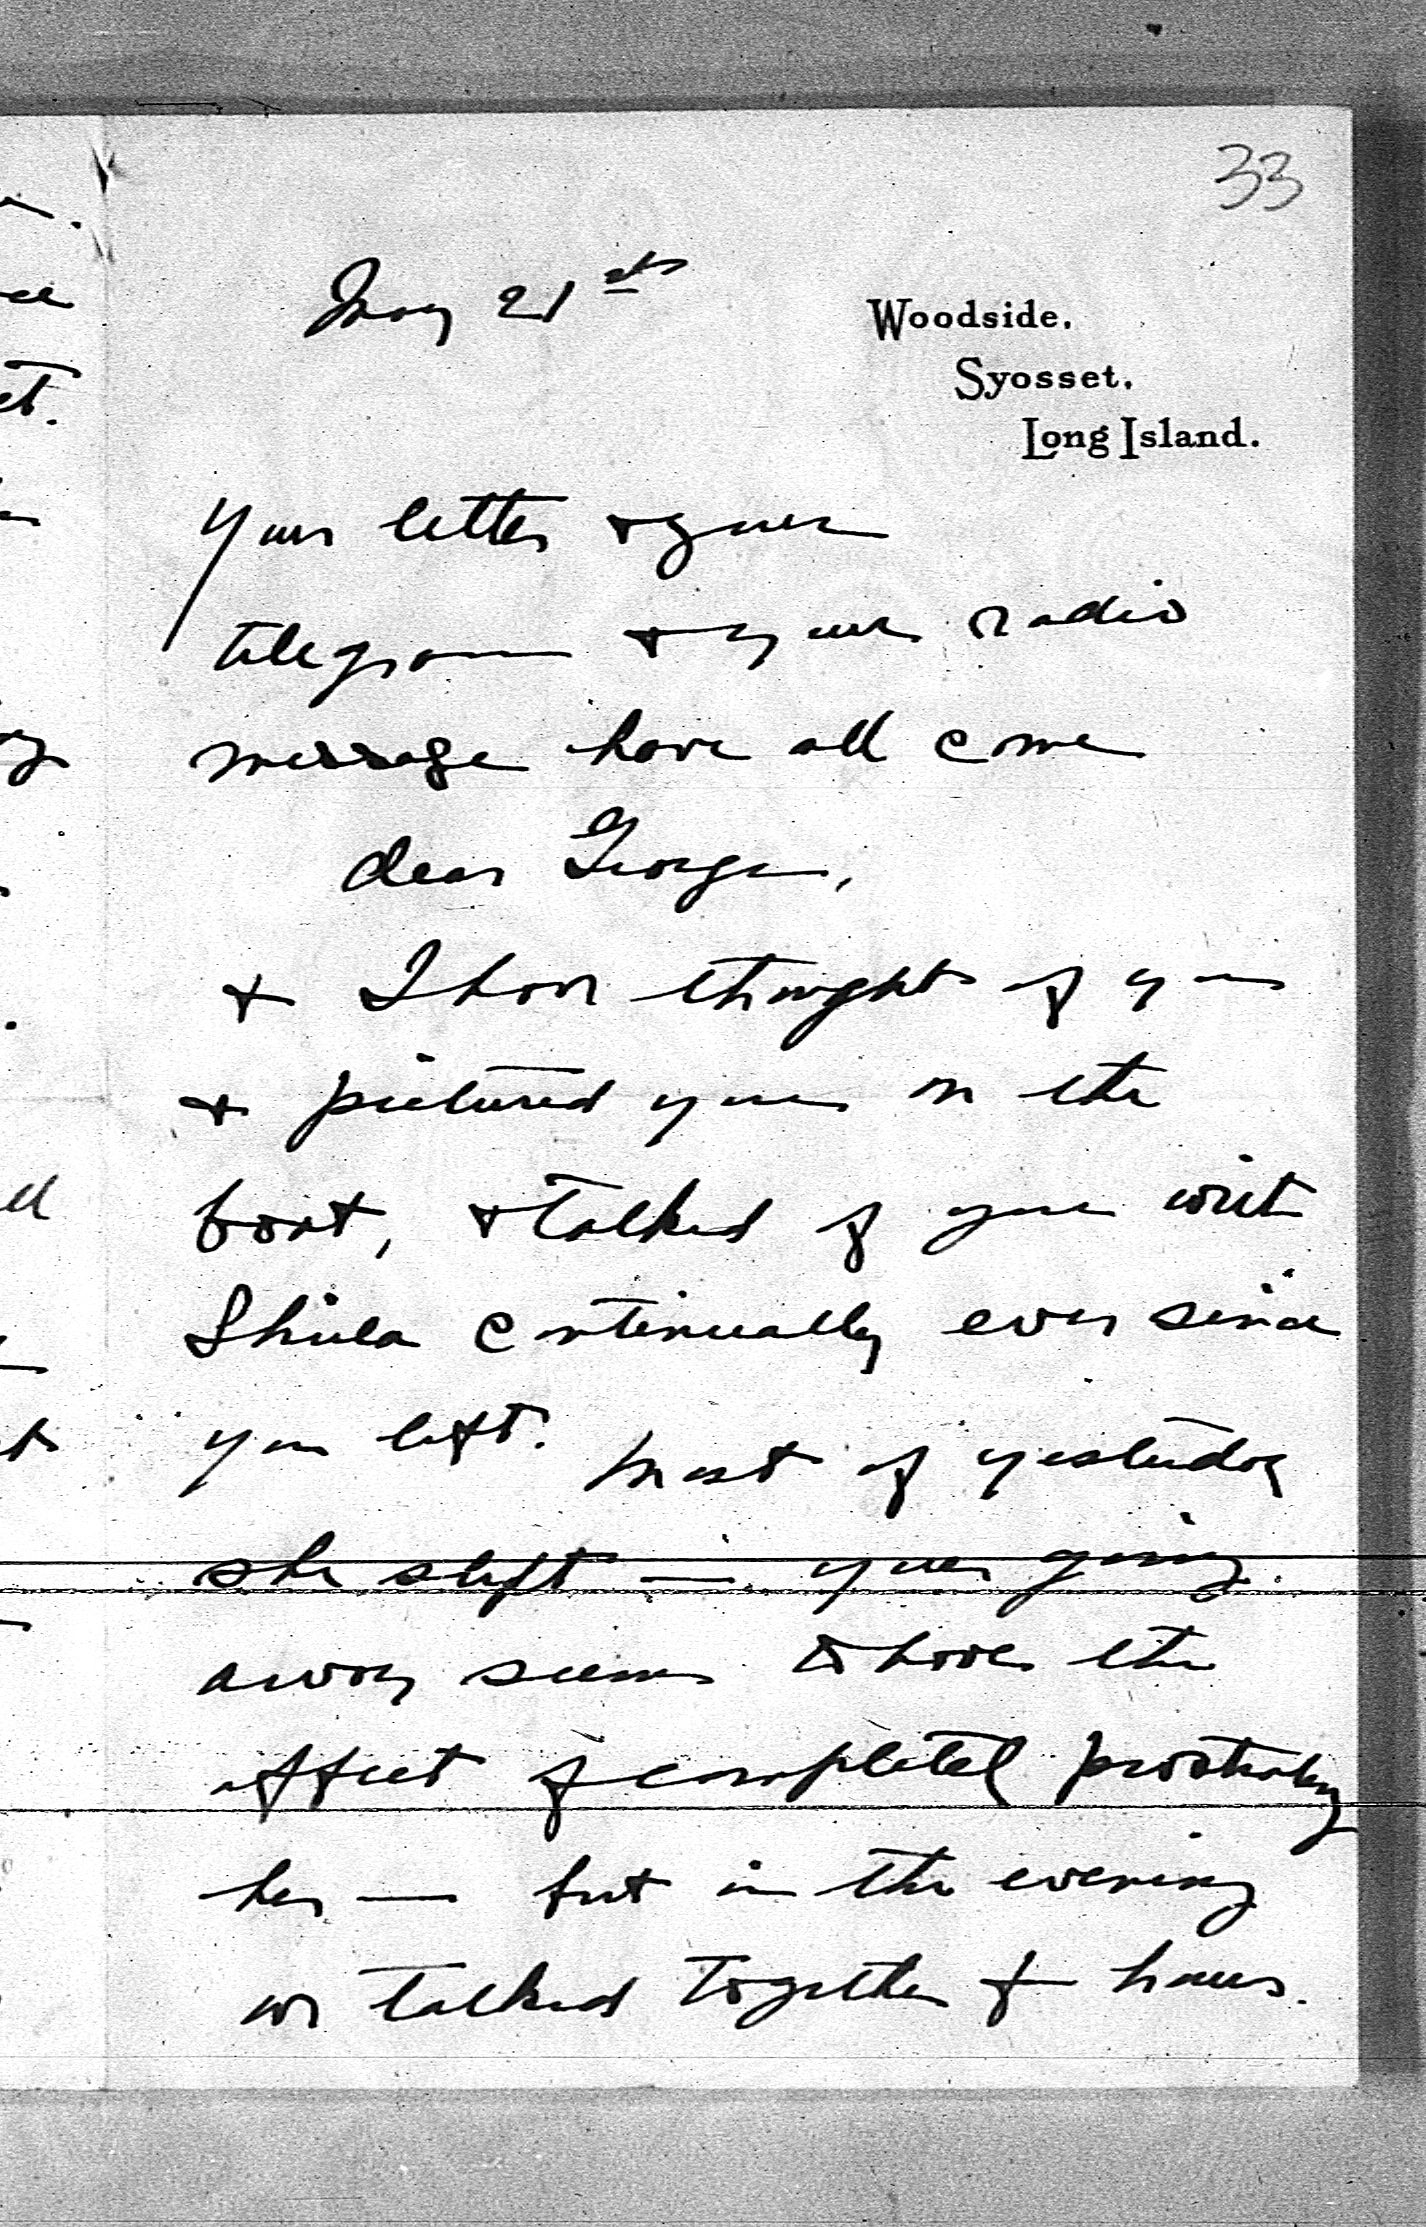 33
May 21st
Woodside.
Syosset.
Long Island.
Your letter & your
telegram & your radio
message have all come
dear George,
& I have thought of you
& pictured you on the
boat, & talked of you with
Sheila continually ever since
you left. Most of yesterday
she slept — your going
away seems to have the
effect of completely prostrating
her — but in the evening
we talked together for hours.